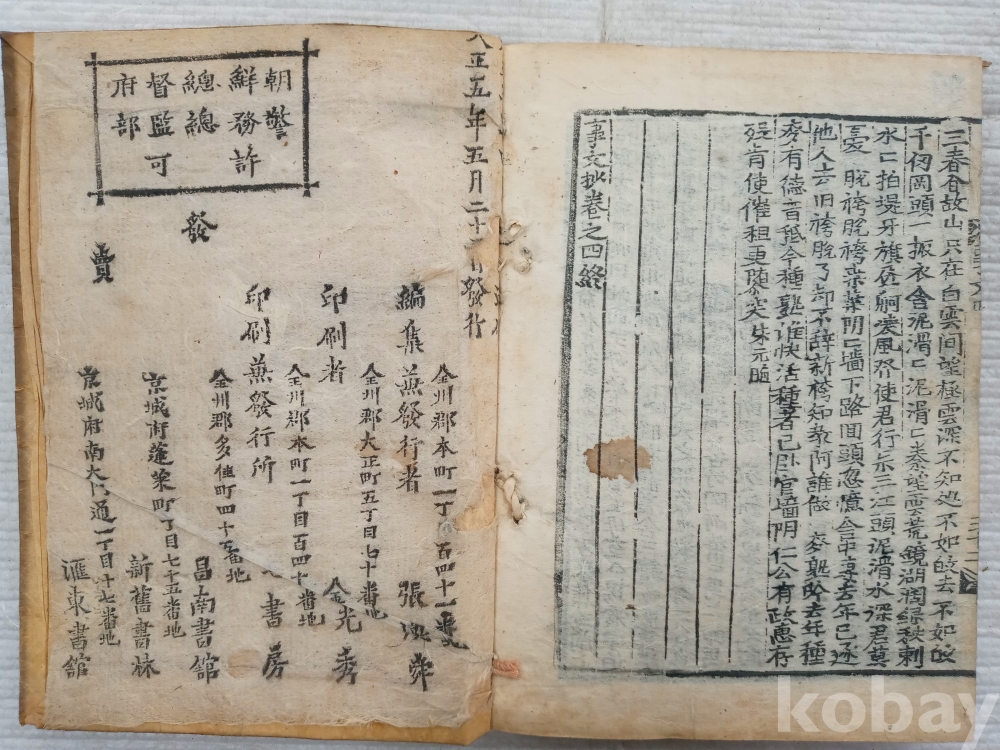 三春谷故山只在白雲间望極雲深不知処不如皈去不如皈
千仞罔頭一振衣含泥滑々泥滑々秦望雲荒鏡湖濶緑秧刺
水々拍堤牙旗盈舸凌風發使君行乐三江頭泥滑水深君莫
憂 脫袴脫袴桒葉阴々墻下路回頭忽憶舍中妻去年已逐
他人去旧袴脫了却不辞新袴知教阿誰做 麥熟 去年種
麥有德音 今種熟誰快活種者已卧官墻阴仁公有政惠存
殘肯使催租更隨 朱元脑
事文抄卷之四終
三十二
大正五年五月二十 發行
編集兼發行者 全州郡本町一丁 百四十一番 張
印刷者 全州郡大正町五丁目七十番地 金光秀
印刷兼發行所 全州郡本町一丁目百四十 番地 書房
發賣
全州郡多佳町四十 番地 昌南書舘
京城府蓬萊町 丁目七十五番地 新舊書林
京城府南大门通一丁目十七番地 滙東書舘
朝鮮總督府
警務總監部
許可
kobay